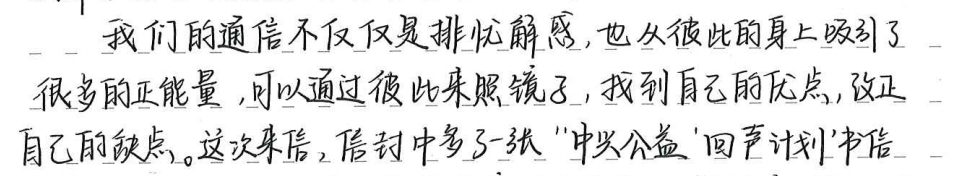 我们的通信不仅仅是排忧解惑,也从彼此的身上吸引了
很多的正能量,可以通过彼此来照镜子,找到自己的优点,改正
自己的缺点。这次来信,信封中多了一张“中兴公益‘回声计划’书信